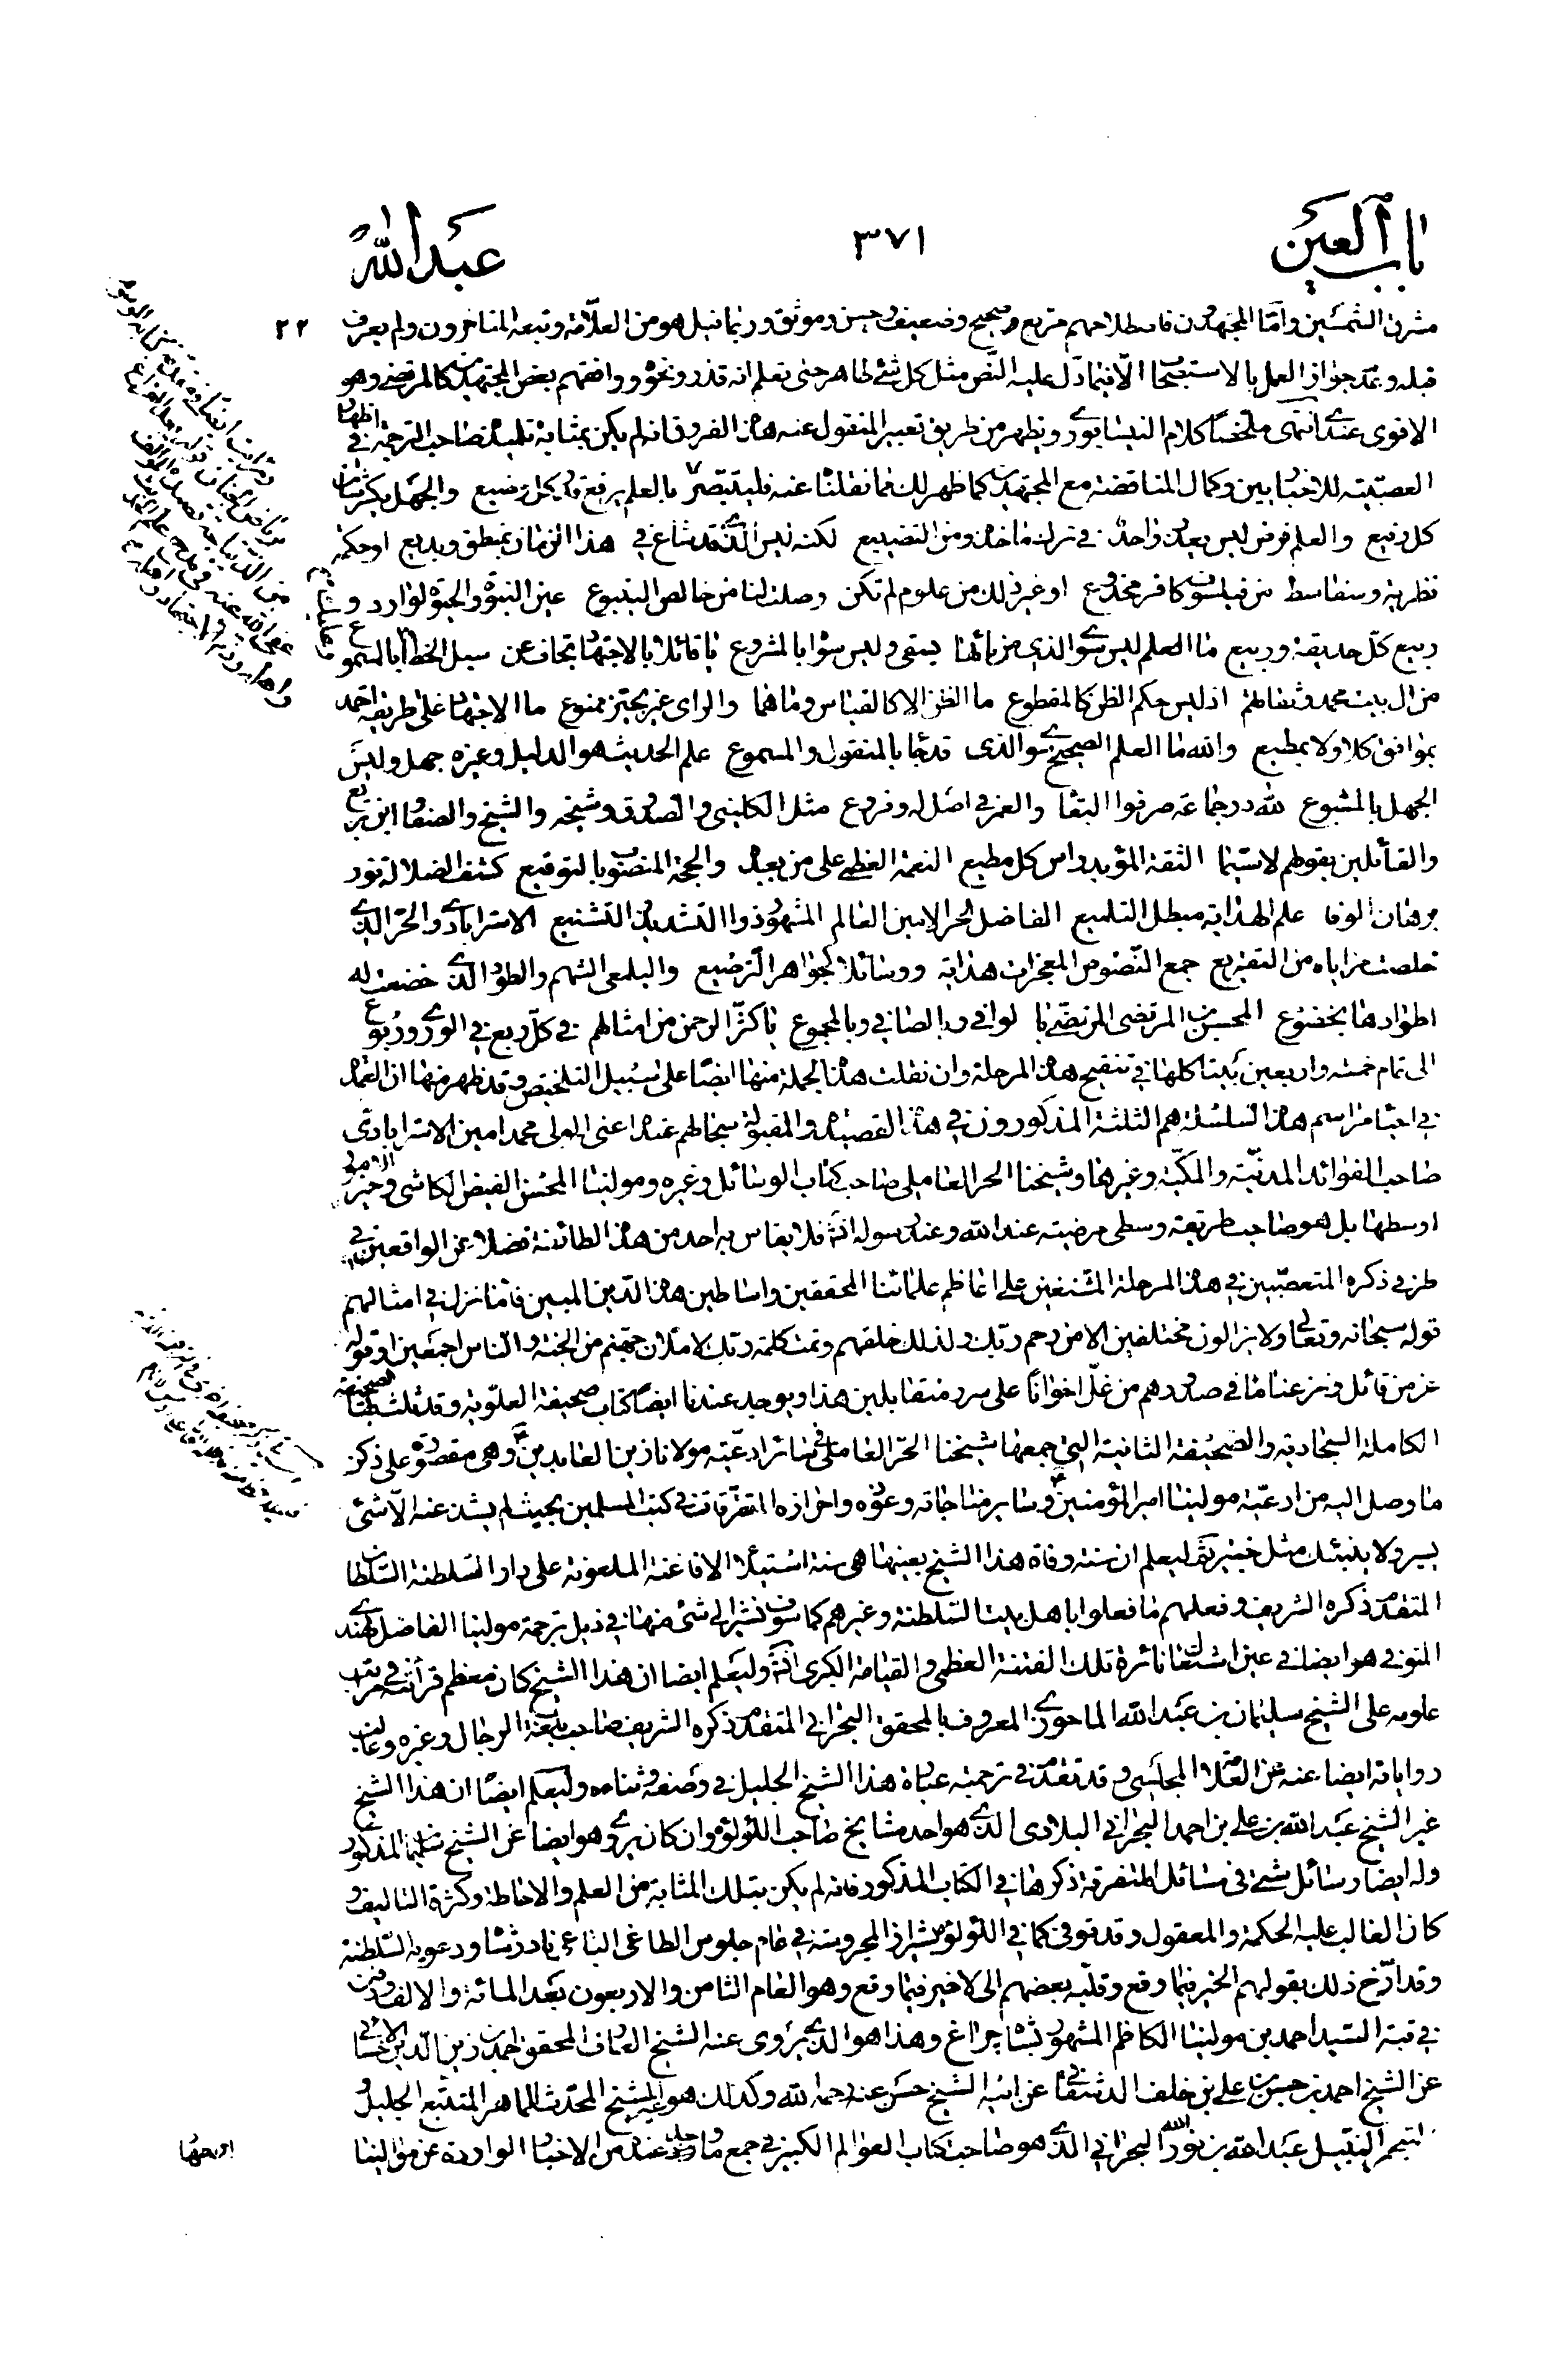 باب العين
٣٧١
عبد الله
٢٢
مشرق الشمسين وامّا المجتهدون فاصطلاحهم مربع صحيح وضعيف وحسن وموثق وربما قيل هو من العلّامة وتبعه المتاخرون ولم يعرف
قبله وعدّ جواز العمل بالاستصحاب الّا فيما دلّ عليه النّص مثل كل شئ طاهر حتى تعلم انه قذر ونحوه ووافقهم بعض المجتهدين كالمرتضى وهو
الاقوى عندى انتهى ملخصا كلام النيسابورى ويظهر من طريق تعبير المنقول عنه هذه الفروق انه لم يكن بمثابة تلميذه صاحب الترجمة فى اظهار
العصبيّة للاخباريين وكمال المناقضة مع المجتهدين كما ظهر لك مما نقلناه عنه فليتبصّر بالعلم يرفع قدر كل وضيع والجهل يكسر شان
كل رفيع والعلم فرض ليس يعذر واحد فى ترك ما خذه ومن التضييع لكنه ليس الذى قد شاع فى هذا الزمان بمنطق وبديع او حكمة
نظرية وسفاسط من فيلسوف كافر مخدوع او غير ذلك من علوم لم تكن وصلت لنا من خالص الينبوع عين النبوّة والحيوة لوارد و
ربيع كلّ حديقة وربيع ما العلم ليس سوى الذى من بابها يسقى وليس سوابالمشروع يا قائلا بالاجتهاد تجاف عن سبل الخطاء بالسمو ع
من ال بيت محمد وثقاتهم اذ ليس حكم الظن كالمقطوع ما الظن الا كالقياس وماهما والراى غير بحيّز ممنوع ما الاجتهاد على طريقه احمد
بموافق كلا ولا بمطيع والله ما العلم الصحيح سوى الذى قد جا بالمنقول والمسموع علم الحديث هو الدليل وغيره جهل وليس
الجهل بالمتبوع لله در جماعة صرفوا البقا والعمر فى اصل له وفروع مثل الكلينى والصدوق وشيخه والشيخ والصفار ابن بزيع
والقائلين بقولهم لاسيّما الثقة المؤيد راس كل مطيع النعمة العظمى على من بعده والحجة المنصوب بالتوقيع كشف الضلالة نور
برهان الوفا علم الهداية مبطل التلميع الفاضل الحر الامين العالم المشهور ذو التشديد والتشنيع الاسترابادى والحرّ الذى
خلصت مزاياه من التقريع جمع النصوص المعجزات هداية ووسائلا كجواهر الترضيع والبلمعى الشهم والطود الذى خضعت له
اطوادها بخضوع المحسن بن المرتضى المرتضى بالوافى وبالصافى وبالمجموع يا كثّر الرحمن من امثالهم فى كلّ ربع فى الورى وربوع
الى تمام خمسة واربعين بيتا كلها فى تنقيح هذه المرحلة وان نقلت هذه الجملة منها ايضا على سبيل التلخيص وقد ظهر منها ان العمدة
فى احيا مراسم هذه السلسلة هم الثلثة المذكورون فى هذه القصيدة والمقبولة سجاياهم عنده اعنى المولى محمد امين الاسترابادى
صاحب الفوائد المدنيّة والمكيّة وغيرهما وشيخنا الحر العاملى صاحب كتاب الوسائل وغيره ومولينا المحسن الفيض الكاشى وخير الامور
اوسطها بل هو صاحب طريقة وسطى مرضية عند الله وعند رسوله فلا يقاس به احد من هذه الطائفة فضلا عن الواقعين فى
طرفى ذكره المتعصّبين فى هذه المرحلة المشنعين على اعاظم علمائنا المحققين واساطين هذا الدّين المبين فامّا نزل فى امثالهم
قوله سبحانه وتعالى ولا يزالون مختلفين الا من رحم ربّك ولذلك خلقهم وتمت كلمة ربّك لاملان جهنّم من الجنة والناس اجمعين او قوله
عز من قائل ونزعنا ما فى صدورهم من غلّ اخوانا على سرر متقابلين هذا ويوجد عندنا ايضا كتاب صحيفة العلوية وقد ثلث بها الصحيفة
الكاملة السجادية والصحيفة الثانية التى جمعها شيخنا الحرّ العاملى فى سائر ادعيّة مولانا زين العابدين وهى مقصورة على ذكر
ما وصل اليه من ادعيّة مولينا امير المؤمنين وساير مناجاته وعوذه واحرازه المتفرقات فى كتب المسلمين بحيث لم يشذ عنه الّا شئ
يسير ولا ينبئك مثل خبير ثمّ ليعلم ان سنة وفاة هذا الشيخ بعينها هى سنة استيلاء الافاغنة الملعونة على دار السّلطنة السلطان
المتقدم ذكره الشريف وفعلهم ما فعلوا باهل بيت السّلطنة وغيرهم كما سوف نشير الى شئ منها فى ذيل ترجمة مولينا الفاضل الهندى
المتوفى هو ايضا فى عين اشتعال نائرة تلك الفتنة العظمى والقيامة الكبرى وليعلم ايضا ان هذا الشيخ كان معظم قرائته فى مراتب
علومه على الشيخ سليمان بن عبد الله الماحوزى المعروف بالمحقق البحرانى المتقدم ذكره الشريف صاحب بلغة الرجال وغيره وغالب
رواياته ايضا عنه عن العلّامة المجلسى وقد تقدّم فى ترجمته عبارة هذا الشيخ الجليل فى وصفه وثنائه وليعلم ايضا ان هذا الشيخ
غير الشيخ عبد الله بن على بن احمد البحرانى البلادى الذى هو احد مشايخ صاحب اللؤلؤة وان كان يروى هو ايضا عن الشيخ سليمان المذكور
وله ايضا رسائل شتى فى مسائل المتفرقة ذكرها فى الكتاب المذكور فانه لم يكن بتلك المثابة من العلم والاحاطة وكثرة التاليف و
كان الغالب عليه الحكمة والمعقول وقد توفى كما فى اللؤلؤة بشيراز المحروسة فى عام جلوس الطاغى الباغى نادر شاه ودعويه السّلطنة
وقد ارّخ ذلك بقولهم الخير فيما وقع وقلّبه بعضهم الى لا خير فيما وقع وهو العام الثامن والاربعون بعد المائة والالف ودفن
فى قبة السّيد احمد بن مولينا الكاظم المشهور بشاه چراغ وهذا هو الذى يروى عنه الشيخ العارف المحقق احمد بن زين الدين الاحسائى
عن الشيخ احمد بن حسن بن على بن خلف الدمستانى عن ابيه الشيخ حسن عنه رحمه الله وكذلك هو غير الشيخ المحدّث الماهر المتتبع الجليل و
المتبحر النبيل عبد الله بن نور الله البحرانى الذى هو صاحب كتاب العوالم الكبير فى جمع ما وجد عنده من الاخبار الواردة عن موالينا